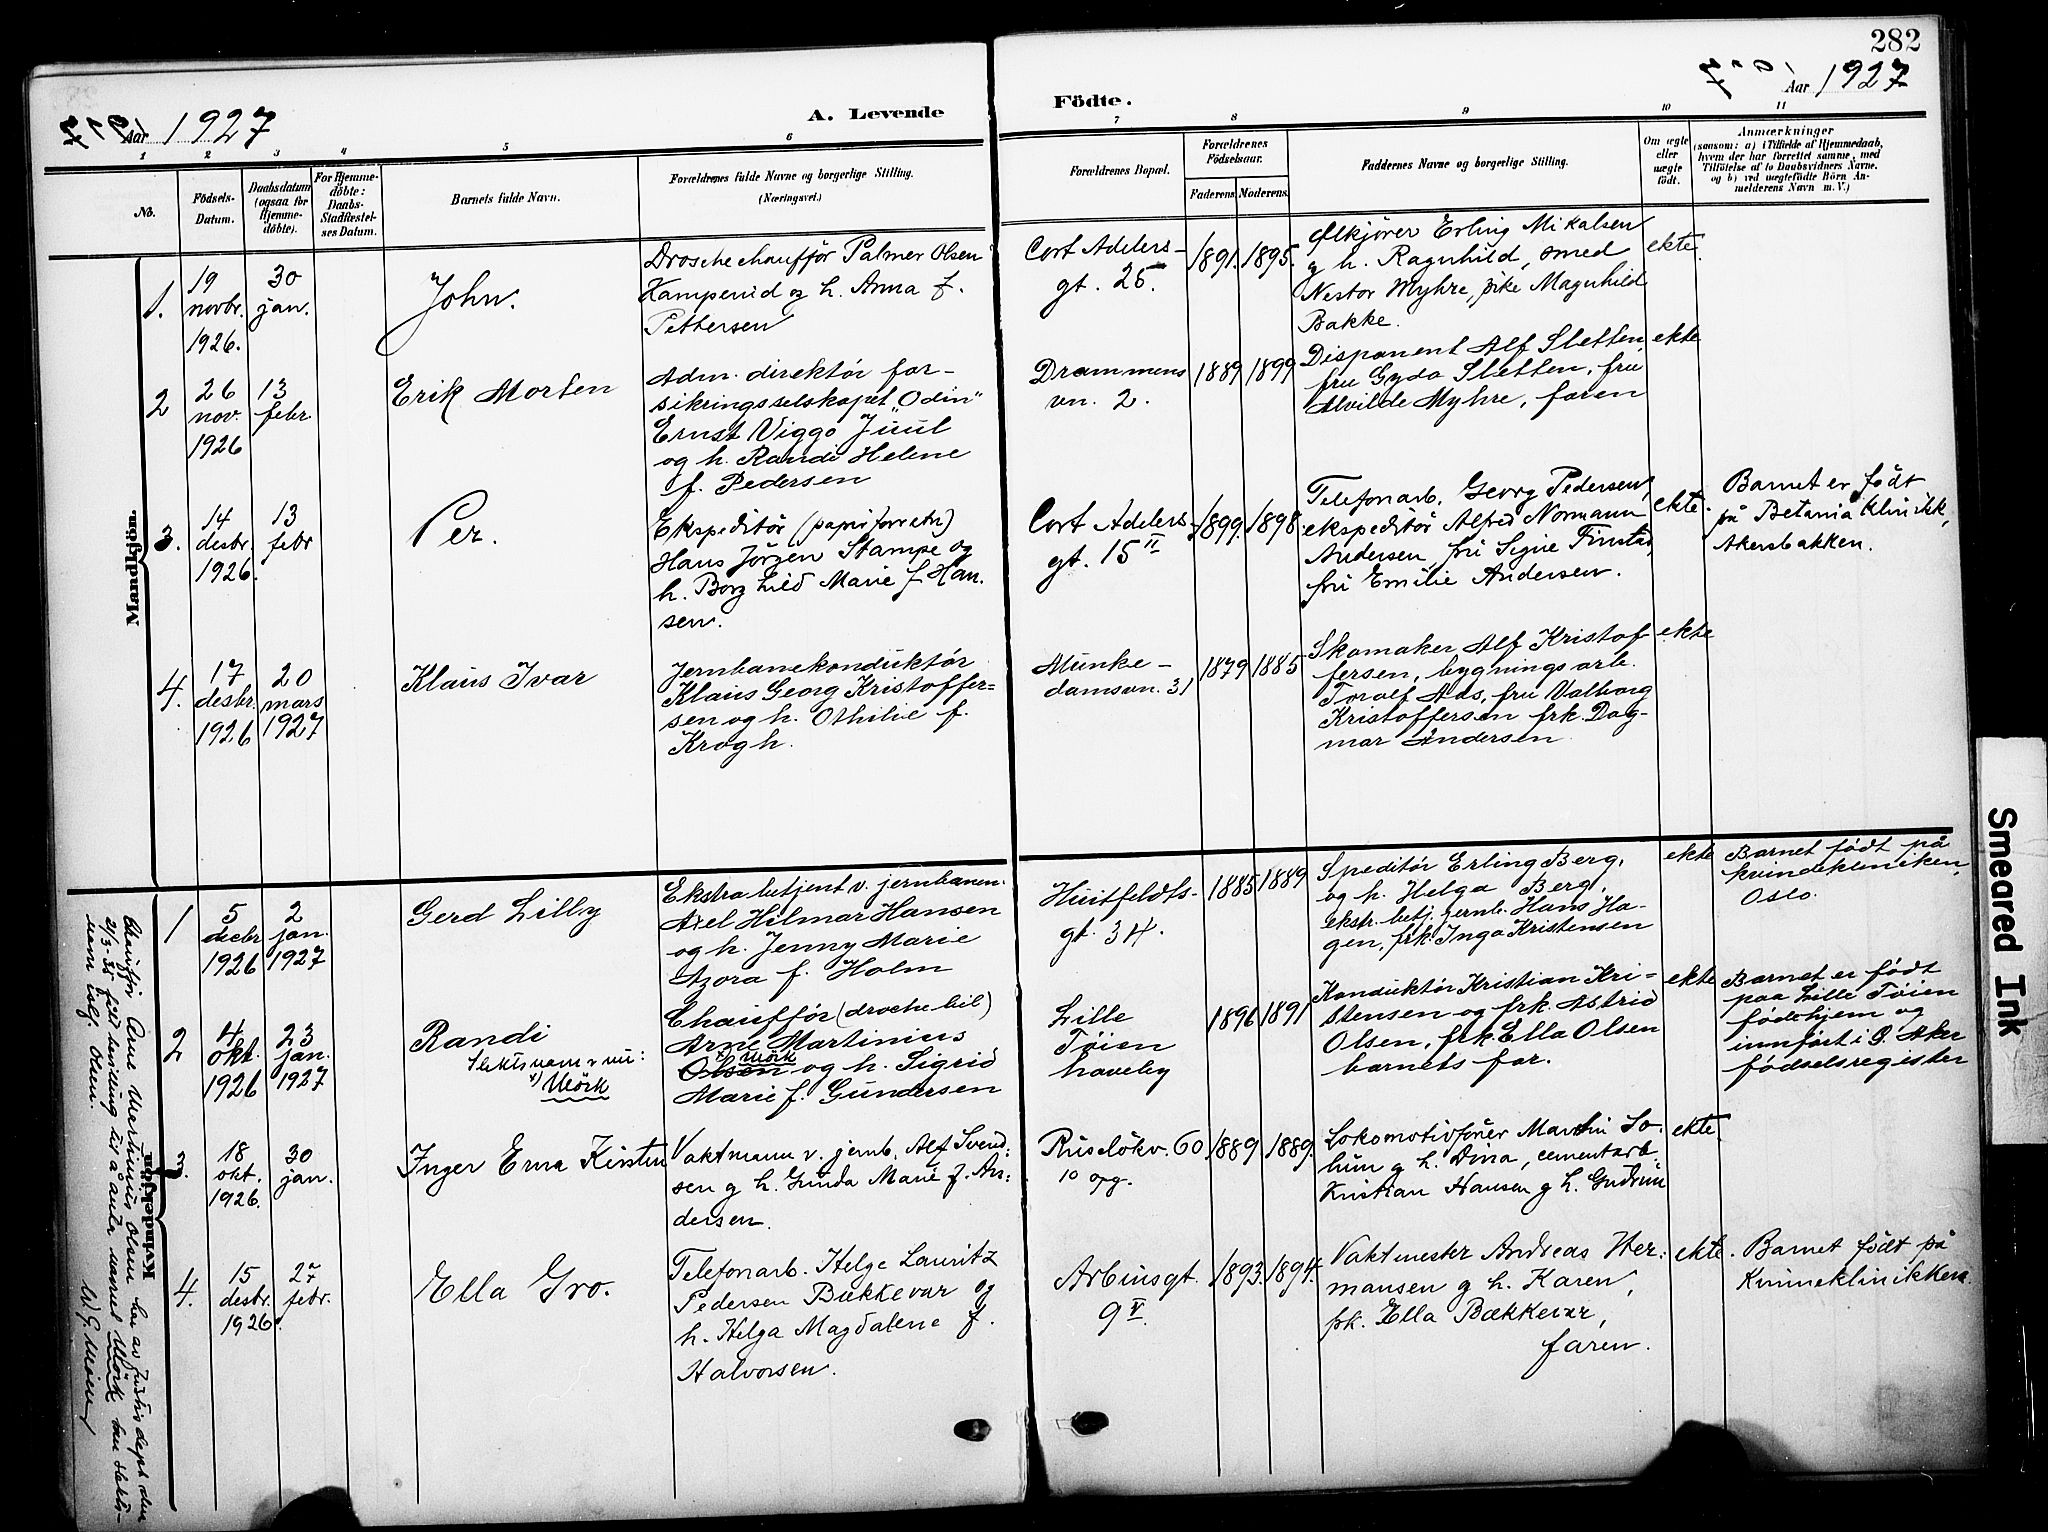 282
Aar 1927
A. Levende
Födte.
Aar 1927
1 2 3 4 5 6 7 8 9 10 11
No.
Födsels-
Datum.
Daabsdatum
(ogsaa for
Hjemme-
döbte).
For Hjemme-
döbte:
Daabs-
Stadfæstel-
ses Datum.
Barnets fulde Navn.
Forældrenes fulde Navne og borgerlige Stilling.
(Næringsvei.)
Forældrenes Bopæl.
Forældrenes
Födselsaar.
Faderens
Moderens.
Faddernes Navne og borgerlige Stilling.
Om ægte
eller
uægte
födt.
Anmærkninger
(saasom: a) i Tilfælde af Hjemmedaab,
hvem der har forrettet samme, med
Tilföielse af to Daabsvidners Navne.
og b) ved uægtefödte Börn An-
melderens Navn m. V.)
Mandkjön.
1.
19
novbr.
1926.
30
jan.
John.
Drosche chauffør Palmer Olsen
Kamperud og h. Anna f.
Pettersen
Cort Adelers-
gt. 25.
1891. 1895.
Ølkjører Erling Mikalsen
g h. Ragnhild, smed
Nestor Myhre, pike Magnhild
Bakke.
ekte.
2
26
nov.
1926
13
febr.
Erik Morten
Adm. direktör for-
sikringsselskapet "Odin"
Ernst Viggo Juul
og h. Randi Helene
f. Pedersen
Drammens
vn. 2.
1889 1899
Disponent Alf Sletten,
fru Gyda Sletten, fru
Alvilde Myhre, faren
ekte
3.
14
desbr.
1926.
13
febr
Per.
Ekspeditör (papirforretn)
Hans Jörgen Stampe og
h. Borghild Marie f Han.
sen.
Cort Adelers-
gt. 15 II
1899. 1898.
Telefonarb. Georg Pedersen,
ekspeditör Alfred Normann
Andersen, fru Signe Finstad,
fru Emilie Andersen.
ekte.
Barnet er födt
på Betania Klinikk,
Akersbakken.
4.
17
desbr.
1926
20
mars
1927
Klaus Ivar
Jernbanekonduktör
Klaus Georg Kristoffer=
sen og h. Othilie f.
Krogh.
Munke-
damsvn. 31
1879 1885
Skomaker Alf Kristof-
fersen, bygningsarb.
Toralf Aas, fru Valborg
Kristoffersen frk. Dag-
mar Andersen
ekte
Kvindekjön.
1
5
decbr
1926
2
jan.
1927
Gerd Lilly
Ekstrabetjent v. jernbanen.
Axel Hilmar Hansen
og h. Jenny Marie
Azora f. Holm
Huitfeldts-
gt. 34.
1885 1889
Speditör Erling Berg,
og h. Helga Berg,
ekstr. betj. jernb. Hans Ha-
gen, frk. Inga Kristensen
ekte
Barnet födt på
kvindekliniken,
Oslo.
2
4
okt.
1926
23
jan.
1927
Randi
Slektsnavn nu:
x) Mörk
Chaufför (droschebil)
Arne Martinius
x) Mörk
Olsen og h. Sigrid
Marie f. Gundersen
Lille
Töien
haveby
1896 1891
Konduktör Kristian Kri-
stensen og frk. Astrid
Olsen, frk. Ella Olsen
barnets far.
ekte
Barnet er födt
paa Lille Töien
födehjem og
innfört i Ö. Aker
födselsregister
3.
18
okt.
1926.
30
jan.
Inger Erna Kirsten
Vaktmann v. jernb. Alf Svend:
sen g h. Gunda Marie f. An:
dersen.
Ruseløkv. 60
10 opg.
1889 1889.
Lokomotivfører Martin So-
lum g h. Dina, cementarb.
Kristian Hansen g h. Gudrun
ekte.
4.
15
desbr.
1926.
27
febr.
Ella Gro.
Telefonarb. Helge Lauritz
Pedersen Bækkevar og
h. Helga Magdalene f.
Halvorsen.
Arbinsgt.
9 V.
1893. 1894.
Vaktmester Andreas Her:
mansen g h. Karen,
frk. Ella Bækkevar,
faren.
ekte.
Barnet födt på
Kvinneklinikken
Chauffør Arne Martinius Olsen har av Justisdept. den
21/3-35 fått bevilling til å anta navnet Mörk som slekts-
navn istf. Olsen.
Smeared Ink